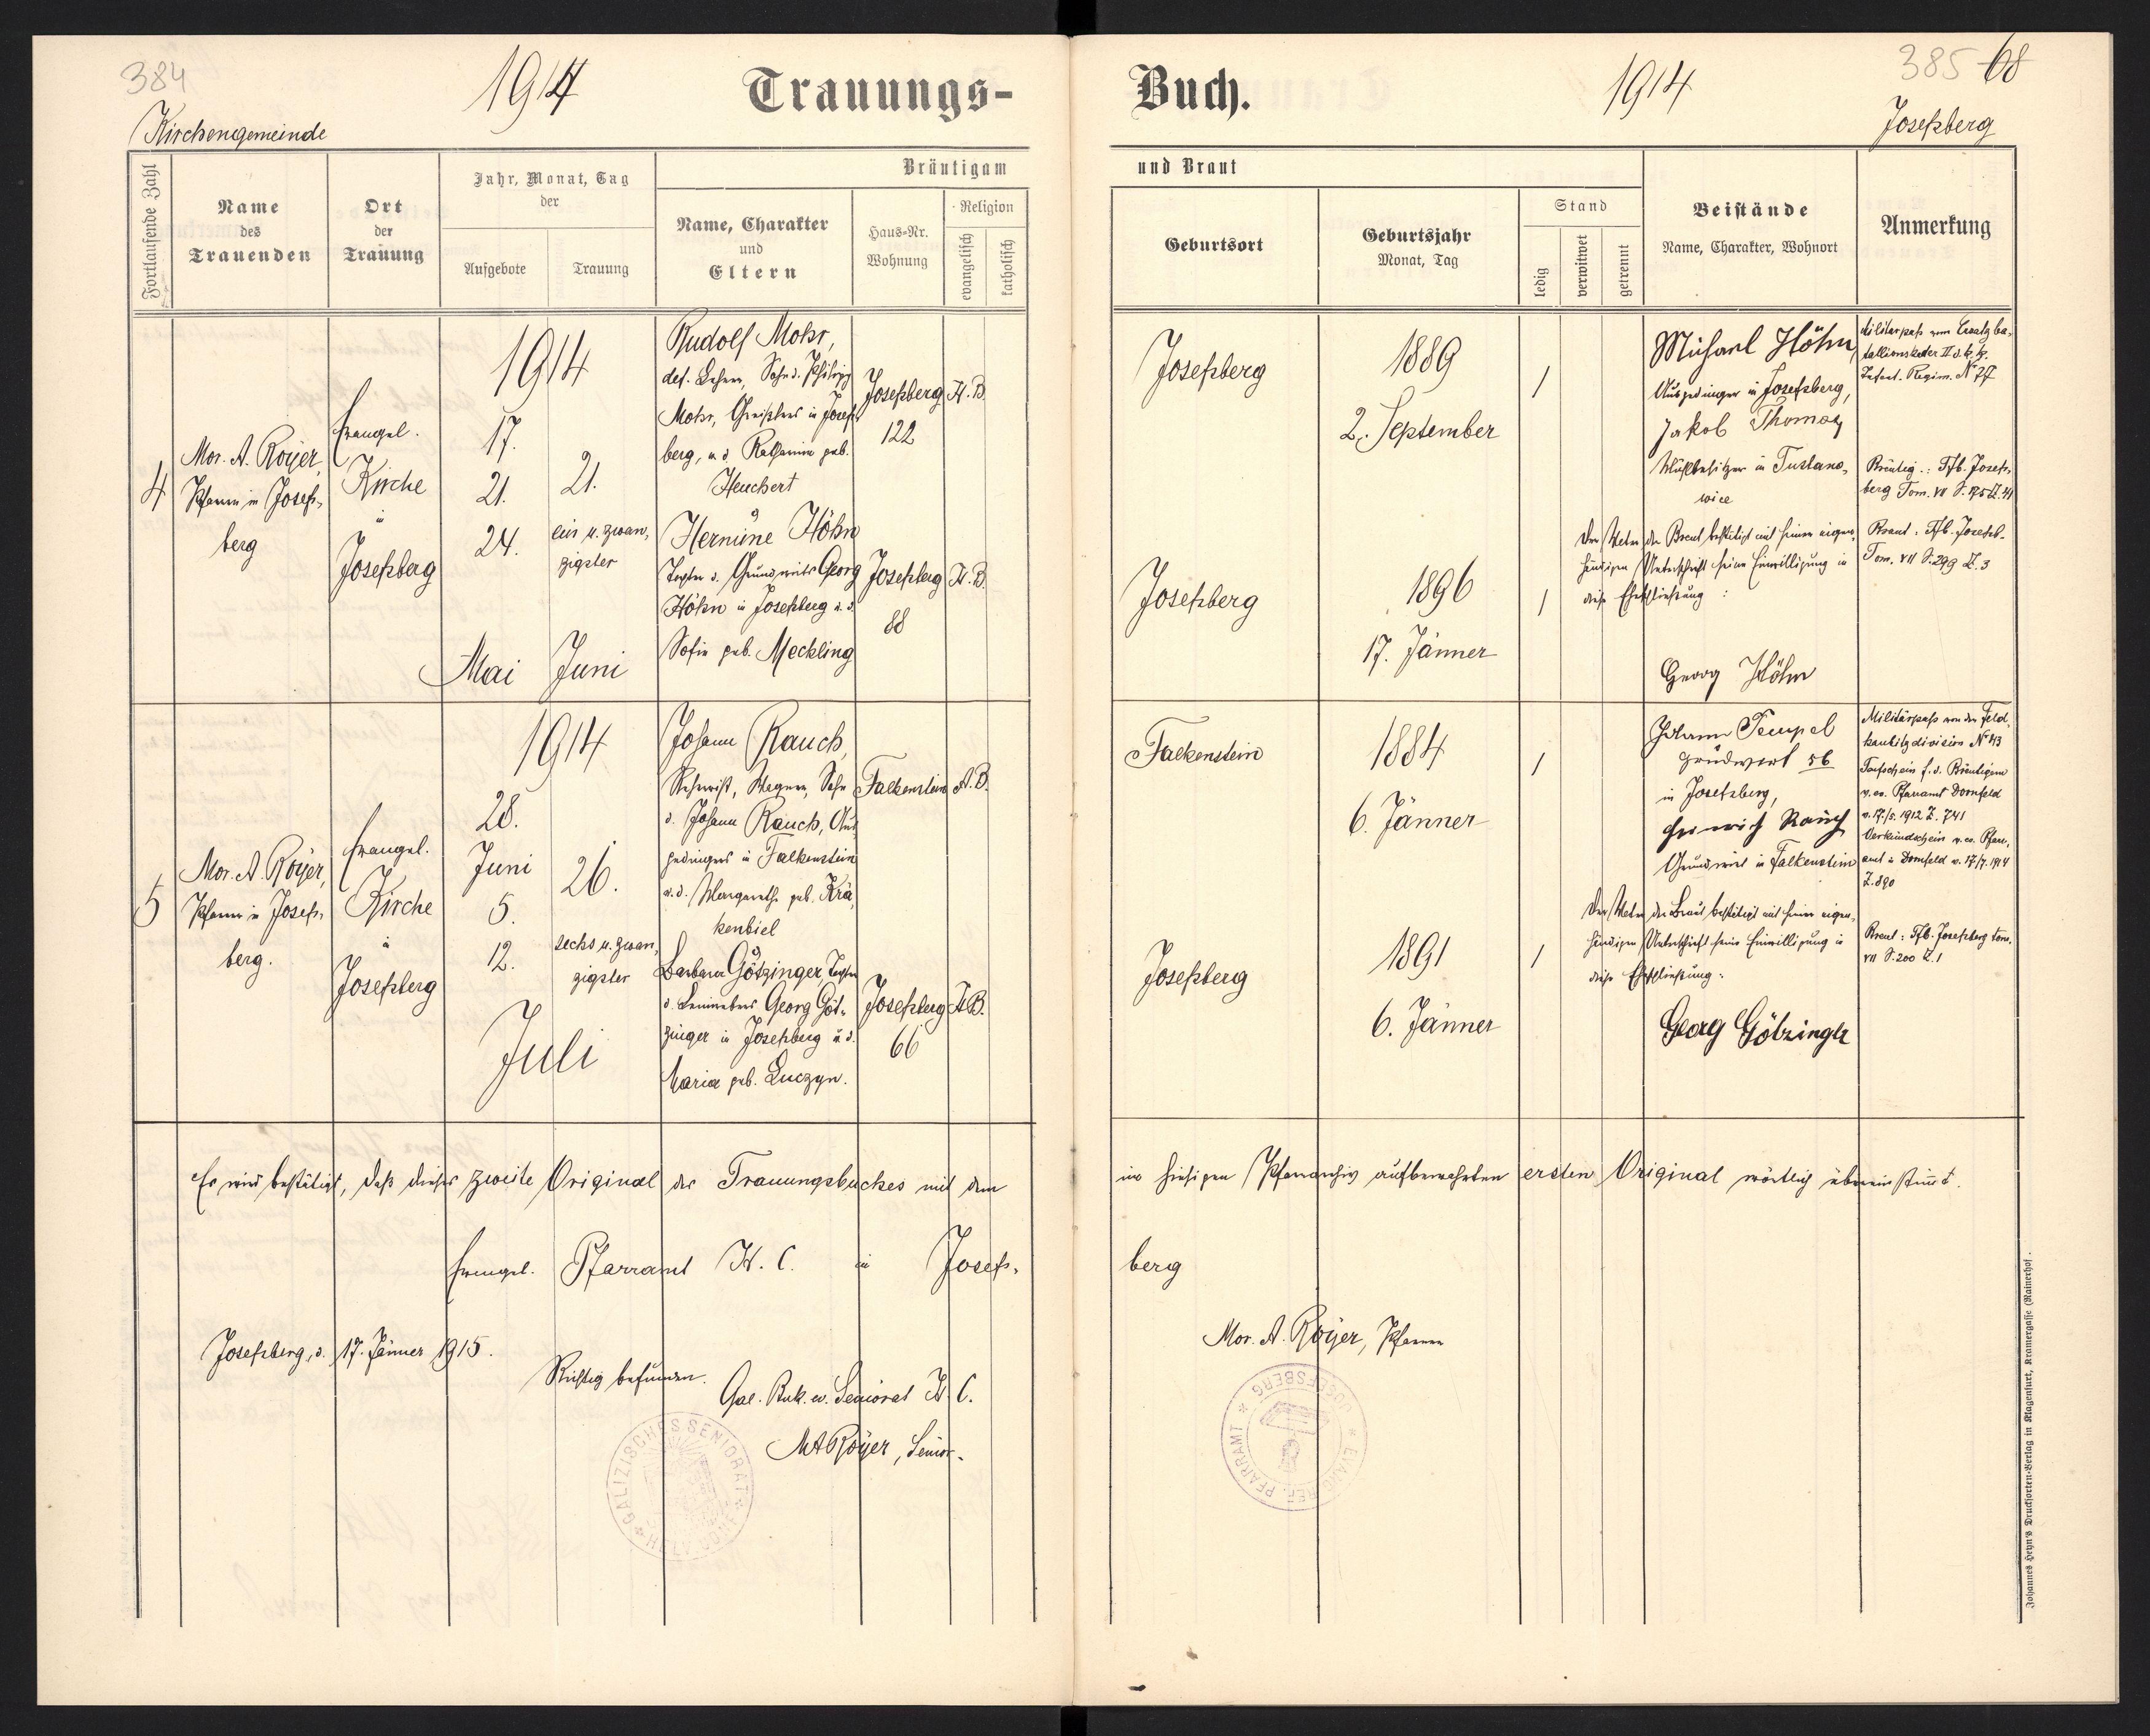 384
1914
Trauungs-
Kirchengemeinde
Fortlaufende Zahl
Name
des
Trauenden
Ort
der
Trauung
Jahr, Monat, Tag
der
Aufgebote
Trauung
Bräutigam
Name, Charakter
und
Eltern
Haus-Nr.
Wohnung
Religion
evangelisch
katholisch
4
Mor. A. Royer,
Pfarrer in Josefs-
berg
Evangel.
Kirche
in
Josefsberg
1914
17.
21.
24.
Mai
21.
ein u. zwan-
zigster
Juni
Rudolf Mohr,
def. Lehrer, Sohn d. Philipp
Mohr, Greislers in Josefs-
berg, u. d. Katharina geb.
Heuchert
Josefsberg
122
H. B.
Hermine Höhn
Tochter d. Grundwirts Georg
Höhn in Josefsberg u. d.
Sofie geb. Meckling
Josefsberg
88
H. B.
5
Mor. A. Royer,
Pfarrer in Josefs-
berg.
Evangel.
Kirche
in
Josefsberg
1914
28.
Juni
5.
12.
26.
sechs u. zwan-
zigster
Juli
Johann Rauch,
Reservist, Wagner, Sohn
d. Johann Rauch, Aus-
gedingers in Falkenstein
u. d. Margarethe geb. Krä-
kenbiel
Falkenstein
A. B.
Barbara Götzinger, Tochter
d. Georg Göt-
zinger in Josefsberg u. d.
Maria geb. Luczyn.
Josefsberg
66
H. B.
Es wird bestätigt, daß dieses zweite Original des Trauungsbuches mit dem
Evangel. Pfarramt H. C. in Josefs-
Josefsberg, d. 17. Jänner 1915.
Richtig befunden.
Gal. Buk. ev. Seniorat H. C.
MARoyer, Senior.
GALIZISCHES SENIORAT
Buch.
1914
385
68
Josefsberg
und Braut
Geburtsort
Geburtsjahr
Monat, Tag
Stand
ledig
verwitwet
getrennt
Beistände
Name, Charakter, Wohnort
Anmerkung
Josefsberg
1889
2. September
1
Michael Höhn
Ausgedinger in Josefsberg,
Jakob Thomas
Mühlbesitzer in Tustano-
wice
Militärpass vom Ersatzba-
taillonskader II d. k. k.
Infant. Regim. Nº 77
Bräutig.: Tfb. Josefs-
berg Tom. VII S. 175 Z. 41
Josefsberg
1896
17. Jänner
1
Der Vater der Braut bestätigt mit seiner eigen-
händigen Unterschrift seine Einwilligung in
diese Eheschließung:
Georg Höhn
Braut: Tfb. Josefsb.
Tom. VII S. 299 Z. 3
Falkenstein
1884
6. Jänner
1
Johann Tempel
grundwirt 56
in Josefsberg,
Heinrich Rauch
Grundwirt in Falkenstein
Militärpass von der Feld-
haubitzdivision Nº 43
Taufschein f. d. Bräutigam
v. ev. Pfarramt Dornfeld
v. 17./5. 1912 Z. 741
Verkündschein v. ev. Pfarr-
amt in Dornfeld v. 17/7. 1914
Z. 890
Josefsberg
1891
6. Jänner
1
Der Vater der Braut bestätigt mit seiner eigen-
händigen Unterschrift seine Einwilligung in
diese Eheschließung:
Georg Götzinger
Braut: Tfb. Josefsberg tom.
VII S. 200 Z. 1
im hiesigen Pfarrarchiv aufbewahrten ersten Original wörtlich übereinstimmt.
berg
Mor. A. Royer, Pfarrer
EVANG. REF. PFARRAMT * JOSEFSBERG *
Johannes Heyn's Drucksorten-Verlag in Klagenfurt, Kramergasse (Rainerhof.